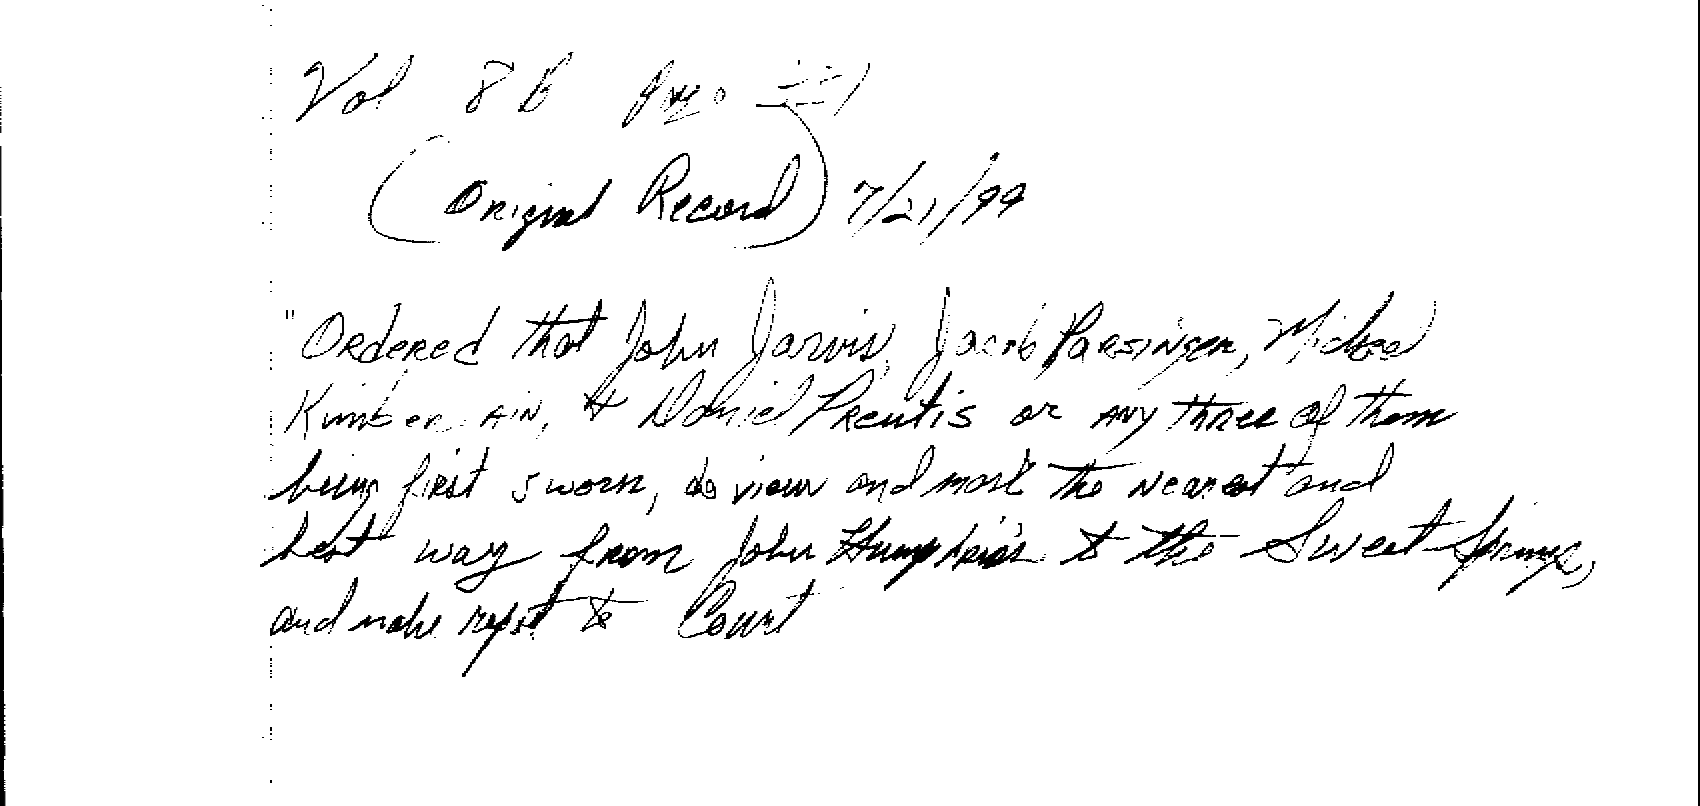 Vol 8 B
(Original Record) 7/21/99
"Ordered that John Jarvis, Jacob Parsinger, Michael
Kimberlain, & Daniel Prentis or any three of them
being first sworn, do view and mark the nearest and
best way from John Humphries to the Sweet Springs,
and make report to Court